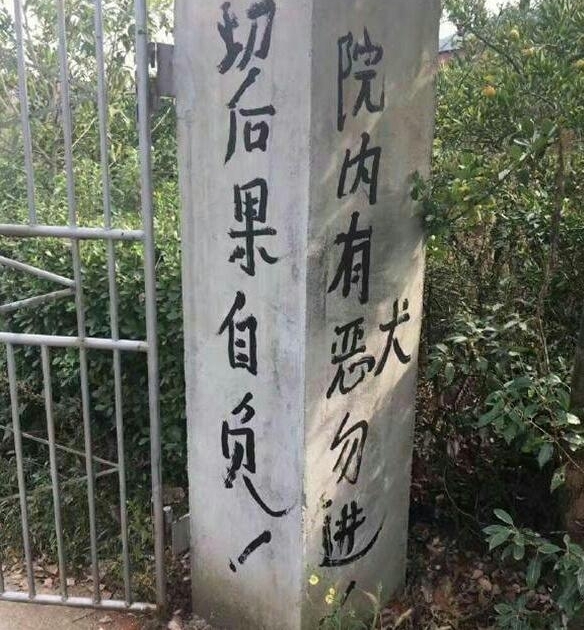 院内有恶犬勿进！
切后果自负！